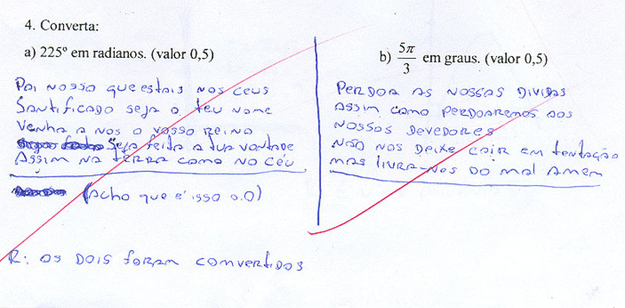 4. Converta:
a) 225º em radianos. (valor 0,5)
Pai nosso que estais nos ceus
Santificado seja o teu nome
Venha a nos o vosso Reino
Seja feita a tua vontade
Assim na terra como no céu
(Acho que é isso o.O)
b) 5π/3 em graus. (valor 0,5)
Perdoa as nossas dividas
assim como perdoaremos aos
nossos devedores
não nos deixe cair em tentação
mas livra-nos do mal amem
R: os dois foram convertidos